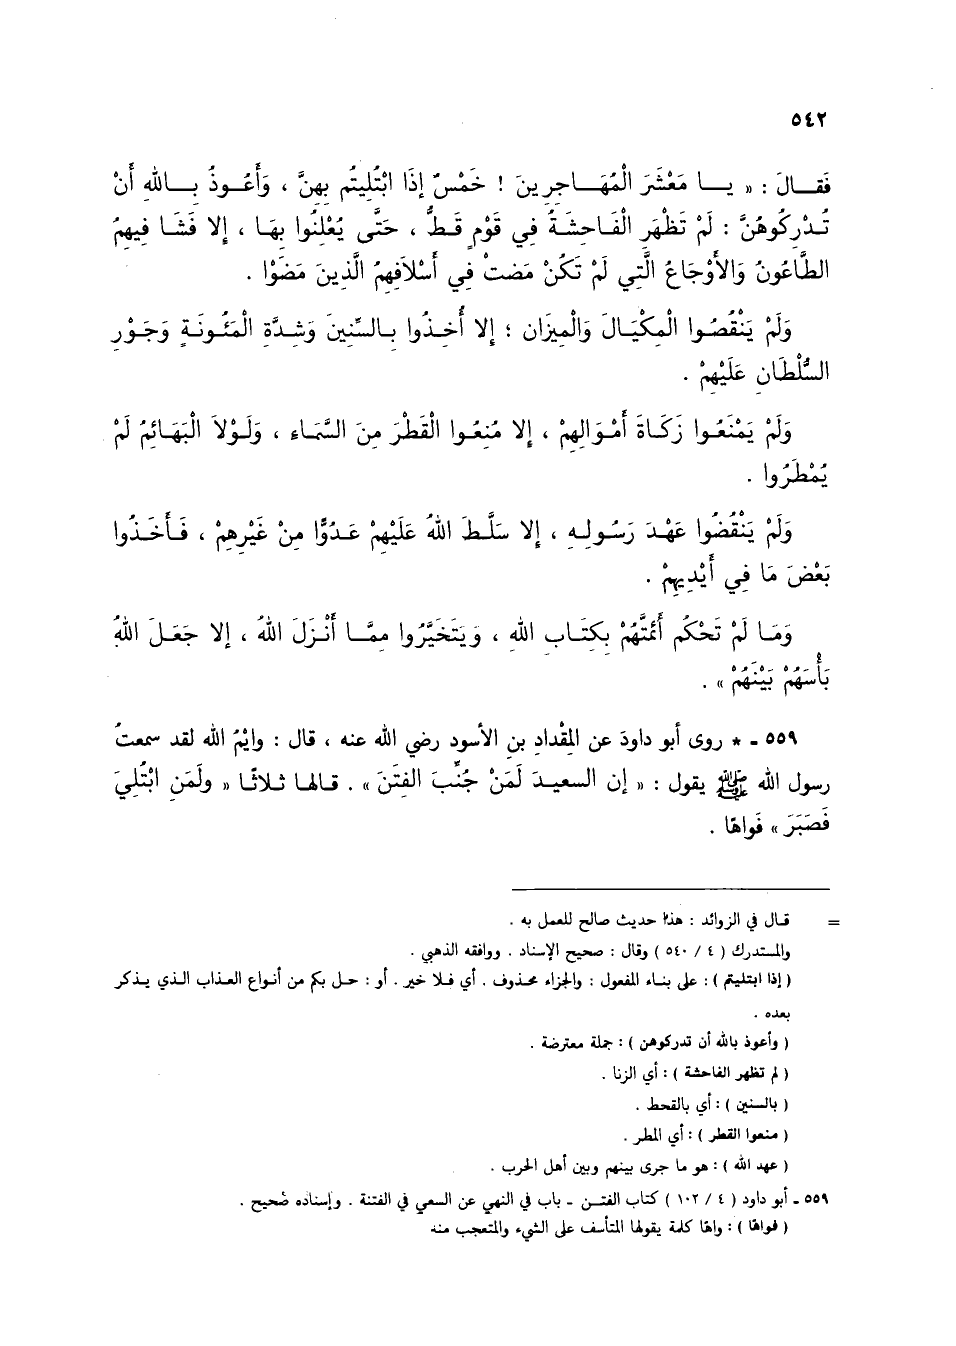 ٥٤٢
فَقَـالَ : « يـا مَعْشَرَ الْمُهَـاجِرِينَ ! خَمْسٌ إِذَا ابْتُلِيتُم بِهِنَّ ، وَأَعُـوذُ بـاللهِ أَنْ
تُـدْرِكُوهُنَّ : لَمْ تَظْهَرِ الْفَـاحِشَـةُ فِي قَوْمٍ قَـطُّ ، حَتَّى يُعْلِنُوا بِهَـا ، إِلا فَشَـا فِيهِمُ
الطَّاعُونُ وَالأَوْجَاعُ الَّتِي لَمْ تَكُنْ مَضتْ فِي أَسْلاَفِهِمُ الَّذِينَ مَضَوْا .
وَلَمْ يَنْقُصُوا الْمِكْيَالَ وَالْمِيزَان ؛ إِلا أُخِـذُوا بـالسِّنِينَ وَشِدَّةِ الْمَئُونَـةِ وَجَـوْرِ
السُّلْطَانِ عَلَيْهِمْ .
وَلَمْ يَمْنَعُـوا زَكَـاةَ أَمْـوَالِهِمْ ، إِلا مُنِعُـوا الْقَطْرَ مِنَ السَّمَـاءِ ، وَلَـوْلاَ الْبَهَـائِمُ لَمْ
يُمْطَرُوا .
وَلَمْ يَنْقُضُوا عَهْـدَ رَسُـولِـهِ ، إِلا سَلَّـطَ اللهُ عَلَيْهِمْ عَـدُوًّا مِنْ غَيْرِهِمْ ، فَـأَخَـذُوا
بَعْضَ مَا فِي أَيْدِيهِمْ .
وَمَـا لَمْ تَحْكُم أَئِمَّتُهُمْ بِكِتَـابِ اللهِ ، وَيَتَخَيَّرُوا مِمَّـا أَنْـزَلَ اللهُ ، إِلا جَعَـلَ اللهُ
بَأْسَهُمْ بَيْنَهُمْ » .
٥٥٩ - * روى أبو داودَ عن المِقْدادِ بنِ الأسود رضي الله عنه ، قال : وايْمُ الله لقد سمعتُ
رسول الله ﷺ يقول : « إن السعيـدَ لَمَنْ جُنِّبَ الفِتَنَ » . قـالهـا ثـلاثًـا « ولَمَنِ ابْتُلِيَ
فَصَبَرَ » فَواهًا .
= قـال في الزوائد : هذا حديث صالح للعمل به .
والمستدرك ( ٤ / ٥٤٠ ) وقال : صحيح الإسناد . ووافقه الذهبي .
( إذا ابتليتم ) : على بنـاء المفعول : والجزاء محـذوف . أي فـلا خير . أو : حـل بكم من أنـواع العـذاب الـذي يـذكر
بعده .
( وأعوذ بالله أن تدركوهن ) : جملة معترضة .
( لم تظهر الفاحشة ) : أي الزنا .
( بالسنين ) : أي بالقحط .
( منعوا القطر ) : أي المطر .
( عهد الله ) : هو ما جرى بينهم وبين أهل الحرب .
٥٥٩ - أبو داود ( ٤ / ١٠٢ ) كتاب الفتـن - باب في النهي عن السعي في الفتنة . وإسناده صحيح .
( فواهًا ) : واهًا كلمة يقولها المتأسف على الشيء والمتعجب منه